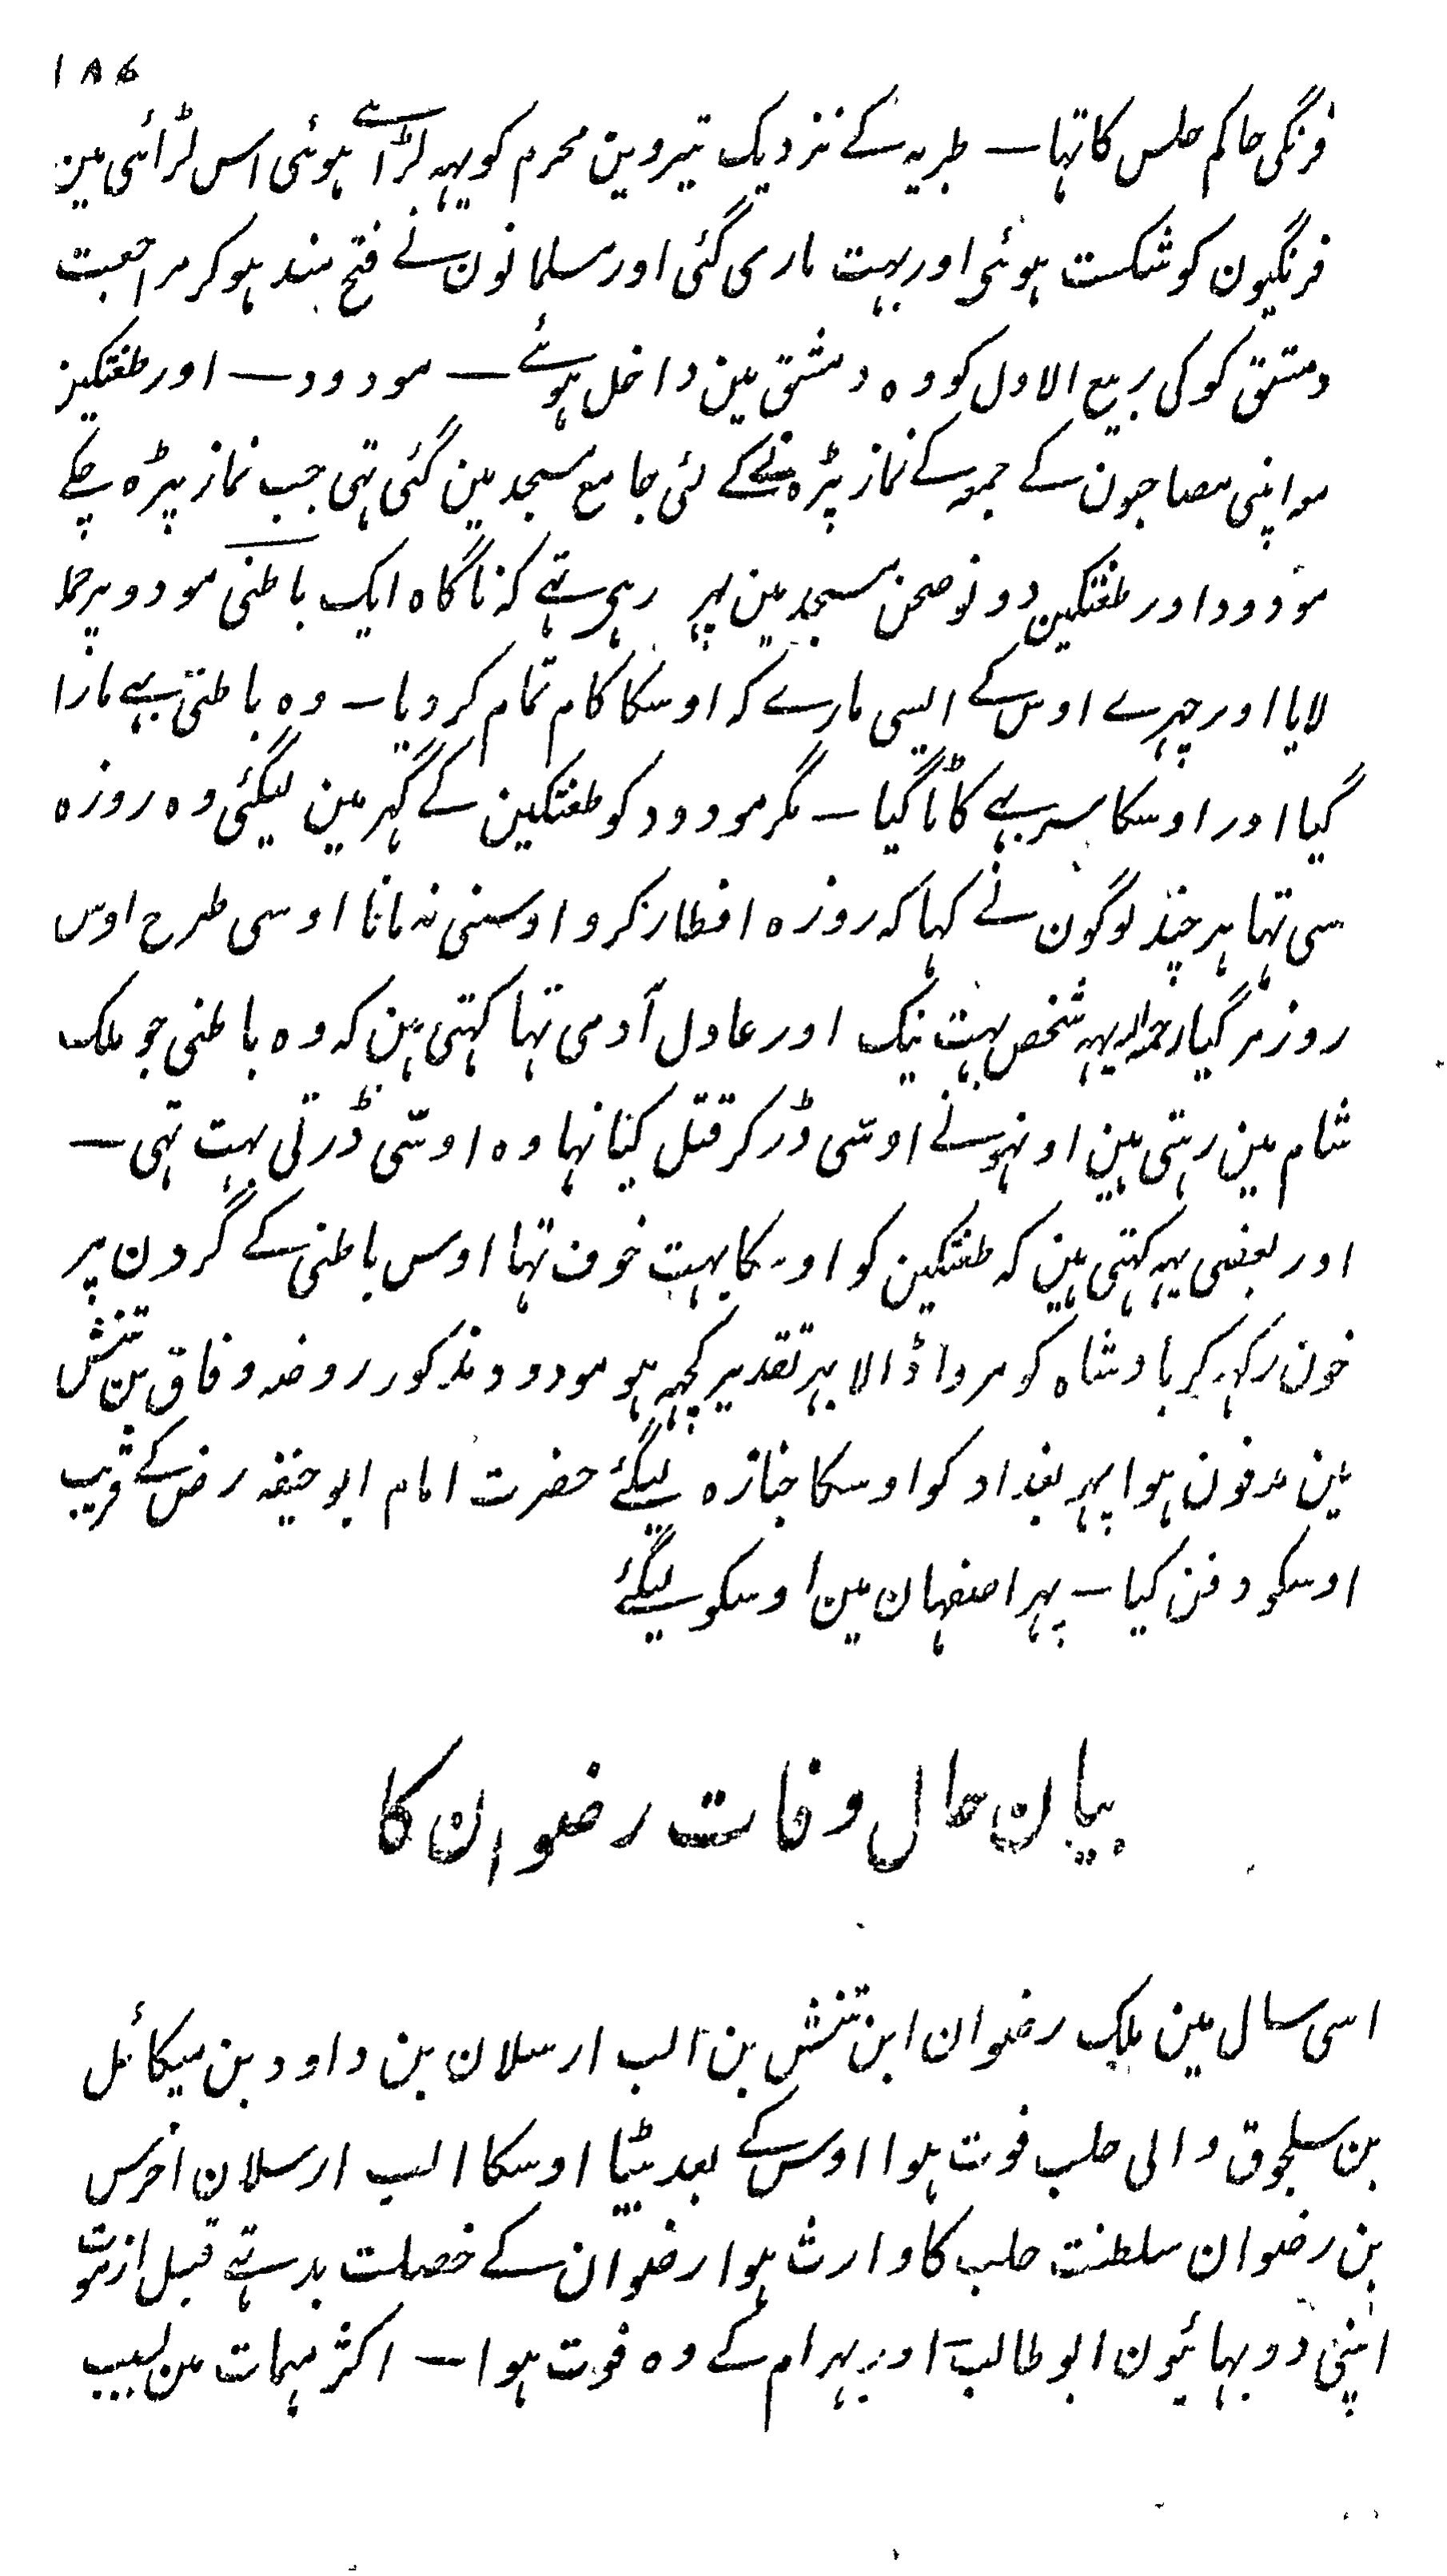 ۱۸۶
فرنگی حاکم حلس کا تہا ــ طبریہ کے نزدیک تیروین محرم کو یہہ لڑاے ہوئی اس لڑائی مین
فرنگیون کو شکست ہوئی اور بہت ماری گئی اور مسلمانون نے فتح مند ہوکر مراجعت
دمشق کو کی ربیع الاول کو وہ دمشق مین داخل ہوئے ــ مودود ــ اور طغتکین
معہ اپنی مصاحبون کے جمعہ کے نماز پڑہنے کے لئی جامع مسجد مین گئی تہی جب نماز پڑہ چکے
مودود اور طغتکین دونو صحن مسجد مین پہر رہی تہے کہ ناگاہ ایک باطنی مودود پر حملہ
لایا اور چہرے اوس کے ایسی مارے کہ اوسکا کام تمام کر دیا ــ وہ باطنی بہے مارا
گیا اور اوسکا سر بہے کاٹا گیا ــ مگر مودود کو طغتکین کے گہر مین لیگئی وہ روزہ
سی تہا ہر چند لوگون نے کہا کہ روزہ افطار کرو اوسنی نہ مانا اوسی طرح اوس
روز مر گیا رحمہ اللہ یہہ شخص بہت نیک اور عادل آدمی تہا کہتی ہین کہ وہ باطنی جو ملک
شام مین رہتی ہین اونہونے اوسّی ڈر کر قتل کیا تہا وہ اوسّی ڈرتی بہت تہی ــ
اور بعضی یہہ کہتی ہین کہ طغتکین کو اوسکا بہت خوف تہا اوس باطنی کے گردن پر
خون رکہہ کر بادشاہ کو مروا ڈالا بہر تقدیر کچہہ ہو مودود مذکور روضہ وفاق بن تتش
مین مدفون ہوا پہر بغداد کو اوسکا جنازہ لیگئے حضرت امام ابو حنیفہ رض کے قریب
اوسکو دفن کیا ــ پہر اصفہان مین اوسکو لیگئے
بیان حال وفات رضوان کا
اسی سال مین ملک رضوان ابن تتش بن الب ارسلان بن داود بن میکائل
بن سلجوق والی حلب فوت ہوا اوس کے بعد بیٹا اوسکا الب ارسلان اخرس
بن رضوان سلطنت حلب کا وارث ہوا رضوان کے خصلت بد تہے قبل از موت
اپنی دو بہائیون ابو طالب اور بہرام کے وہ فوت ہوا ــ اکثر مہمات مین بسبب